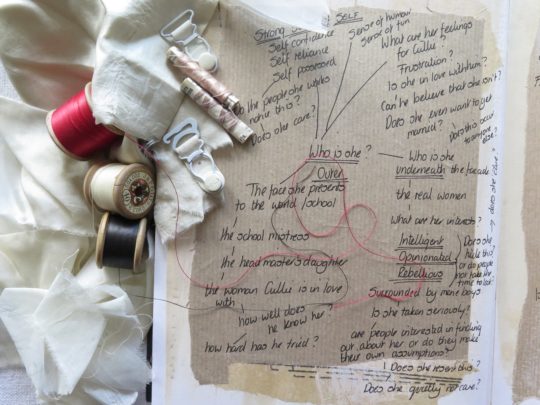 Strong SELF
Self confidence
Self reliance
Self possessed
Do the people she works
notice this?
Does she care?
Sense of humour
sense of fun
What are her feelings
for Cullie?
Frustration?
Is she in love with him?
Can he believe that she isn't?
Does she even want to get
married?
Does this occur
to anyone
else?
Who is she?
Outer
The face she presents
to the world / school
the school mistress
the head master's daughter
the woman Cullie is in love
with
how well does
he know her?
how hard has he tried?
Who is she
underneath the facade
the real women
does she care?
What are her interests?
Intelligent
Opinionated
Rebellious
Does she
hide this
or do people
not take the
time to look?
Surrounded by more boys
Is she taken seriously?
are people interested in finding
out about her or do they make
their own assumptions?
Does she resent this?
Does she quietly not care?